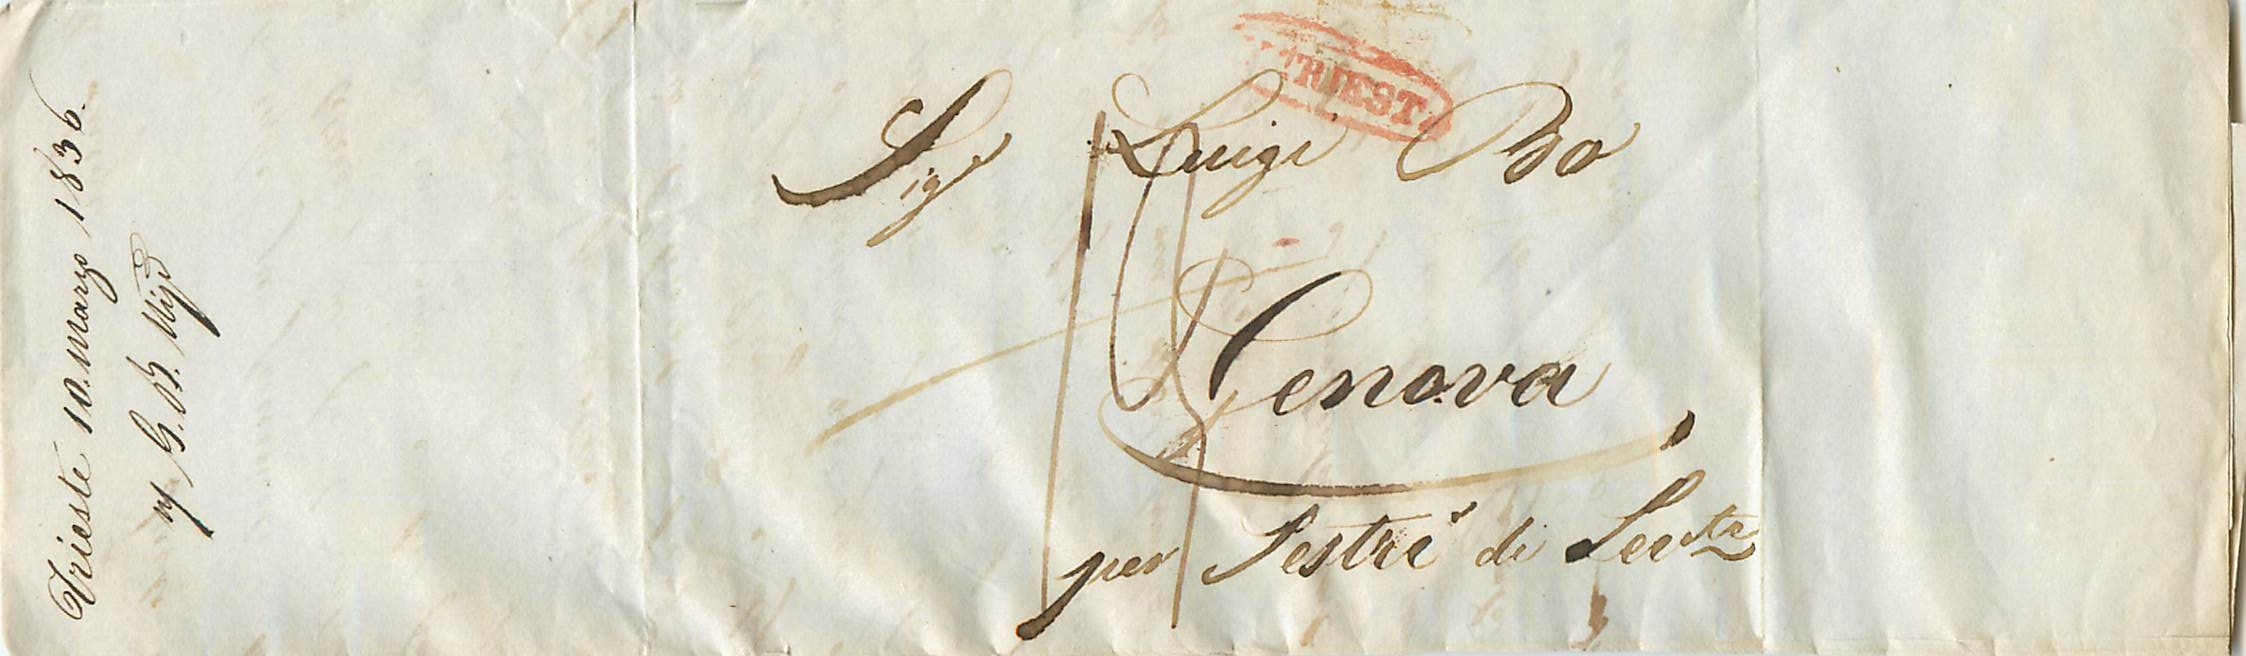 TRIEST
Sigr Luigi Bo
Genova
per Sestri di Levte
Trieste 10. Marzo 1836.
G. B.